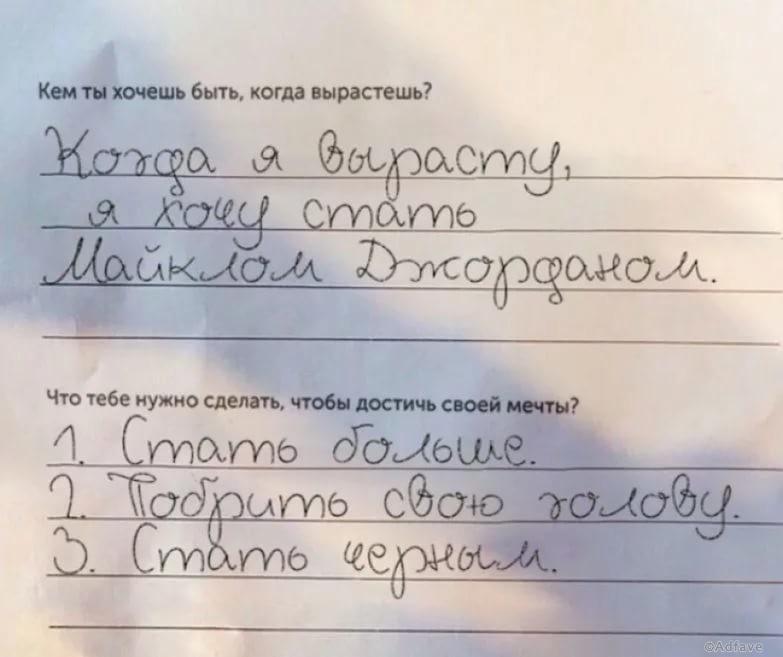 Кем ты хочешь быть, когда вырастешь?
Когда я вырасту,
я хочу стать
Майклом Джорданом.
Что тебе нужно сделать, чтобы достичь своей мечты?
1. Стать больше.
2. Побрить свою голову.
3. Стать черным.
©Adfave